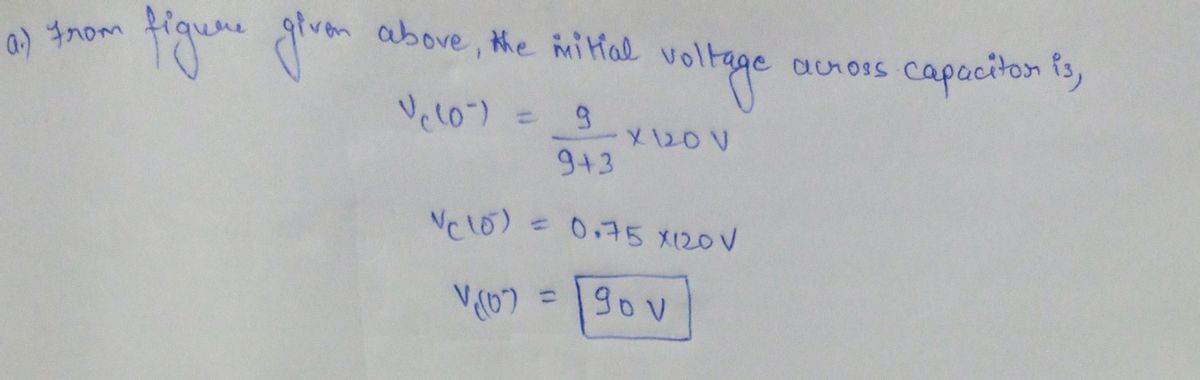 a.) From figure given above, the initial voltage across capacitor is,
Vc(0-) = 9/9+3 × 120 V
Vc(0-) = 0.75 ×120 V
Vc(0-) = 90 V